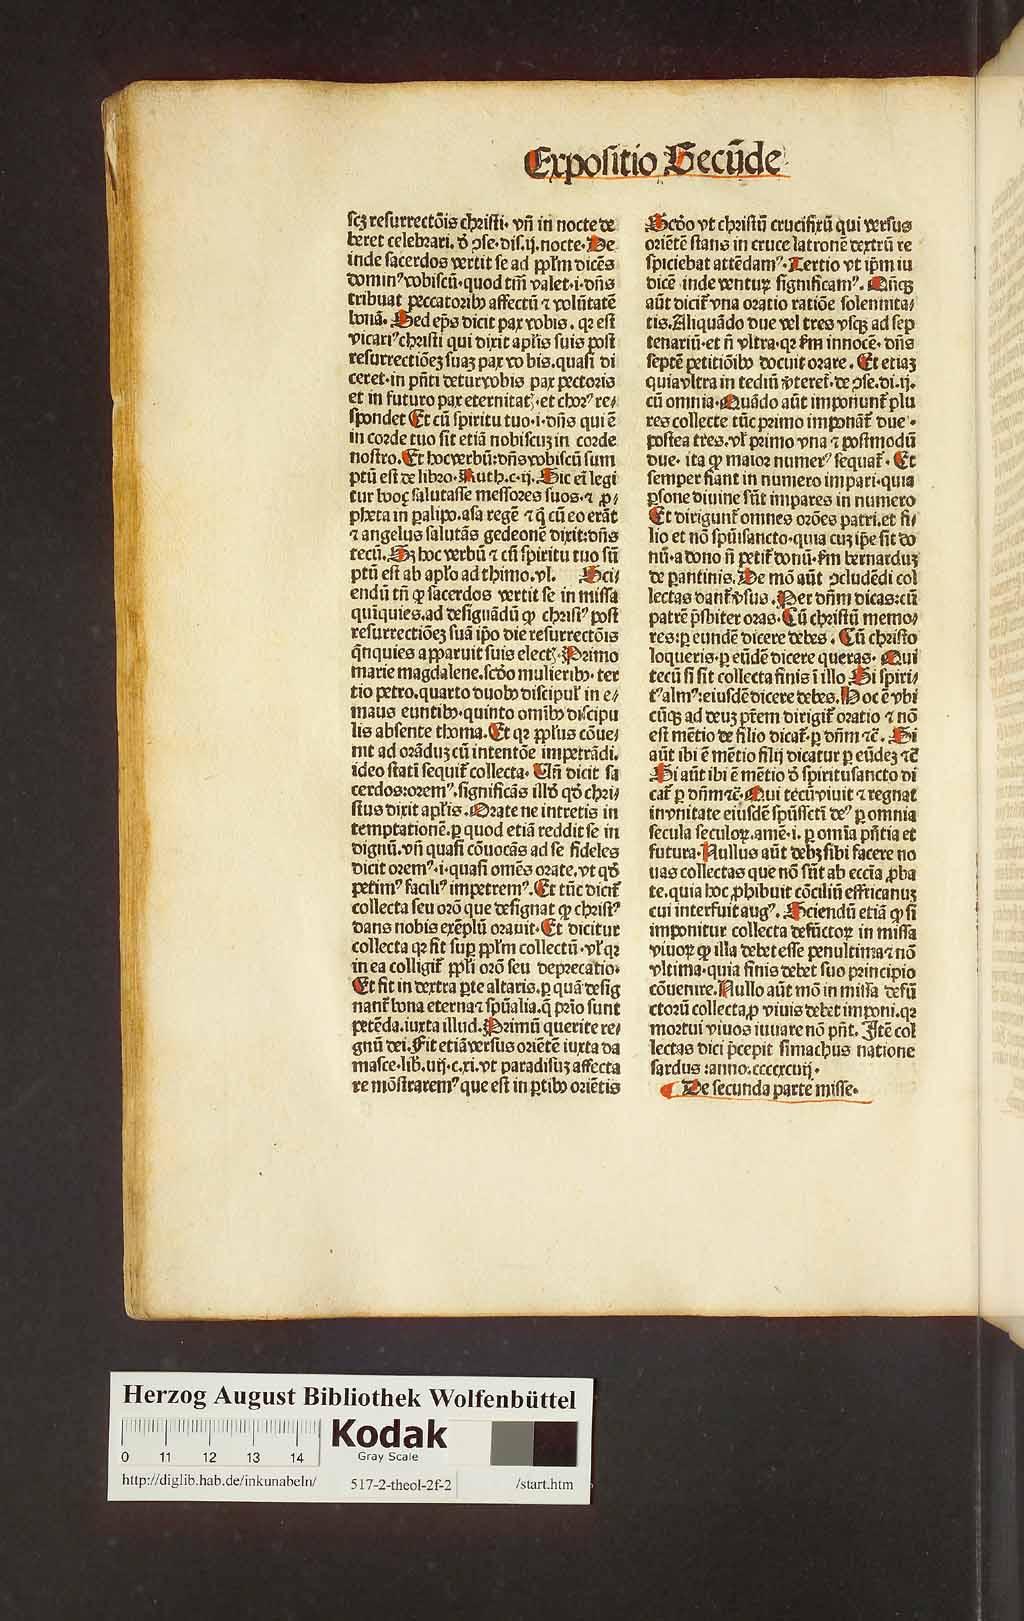 Expositio Secūde
scꝫ resurrectōis christi. vn̄ in nocte de
beret celebrari. ð ꝯse. dis. ij. nocte. De
inde sacerdos vertit se ad pp̄lm dicēs
dominꝰ vobiscū. quod tm̄ valet .i. dn̄s
tribuat peccatoribꝰ affectū ⁊ volūtatē
bonā. Sed ep̄s dicit pax vobis. qꝛ est
vicariꝰ christi qui dixit aplis̄ suis post
resurrectiōeꝫ suaꝫ pax vo bis. quasi di
ceret. in pn̄ti detur vobis pax pectoris
et in futuro pax eternitatꝭ. et chorꝰ re⸗
spondet Et cū spiritu tuo .i. dn̄s qui ē
in corde tuo sit etiā nobiscuꝫ in corde
nostro. Et hoc verbū: dn̄s vobiscū sum
ptū est de libro. Ruth. c. ij. Sic eī legi
tur booꝫ salutasse messores suos. ⁊ ꝓ⸗
pheta in palipo. asa regē ⁊ q̄ cū eo erāt
⁊ angelus salutās gedeonē dixit: dn̄s
tecū. Sꝫ hoc verbū ⁊ cū spiritu tuo sū
ptū est ab aplō ad thimo. vl. Sci⸗
endū tn̄ ꝙ sacerdos vertit se in missa
quīquies. ad designādū ꝙ christꝰ post
resurrectiōeꝫ suā ip̄o die resurrectōis
qn̄quies apparuit suis electꝭ. Primo
marie magdalene. scd̄o mulieribꝰ. ter
tio petro. quarto duobꝰ discipul̄ in e⸗
maus euntibꝰ. quinto om̄ibꝰ discipu
lis absente thoma. Et qꝛ pp̄lus cōue⸗
nit ad orāduꝫ cū intentōe impetrādi.
ideo statī sequit̄ collecta. Un̄ dicit sa
cerdos: oremꝰ. significās illd̄ qd̄ chri⸗
stus dixit aplis̄. Orate ne intretis in
temptationē. ꝑ quod etiā reddit se in
dignū. vn̄ quasi cōuocās ad se fideles
dicit oremꝰ .i. quasi omēs orate. vt qd̄
petimꝰ faciliꝰ impetremꝰ. Et tūc dicit̄
collecta seu orō que designat ꝙ christꝰ
dans nobis exēplū orauit. Et dicitur
collecta qꝛ fit suꝑ pp̄lm collectū. vl̄ qꝛ
in ea colligit̄ pp̄li orō seu deprecatio.
Et fit in dextra ꝑte altaris. ꝑ quā desig
nant̄ bona eterna ⁊ spūalia. q̄ prīo sunt
petēda. iuxta illud. Primū querite re⸗
gnū dei. Fit etiā versus oriētē iuxta da
masce. lib̄. iiij. c. xi. vt paradisuꝫ affecta
re mōstraremꝰ que est in ꝑtibꝰ oriētis
Scd̄o vt christū crucifixū qui versus
oriētē stans in cruce latronē dextrū re
spiciebat attēdamꝰ. Tertio vt ip̄m iu
dicē inde venturꝫ significamꝰ. Qn̄qꝫ
aūt dicit̄ vna oratio ratiōe solennita⸗
tis. Aliquādo due vel tres vsqꝫ ad sep
tenariū. et n̄ vltra. qꝛ fm̄ innocē. dn̄s
septē petitiōibꝰ docuit orare. Et etiaꝫ
quia vltra in tediū v̄teret̄. de ꝯse. di. ij.
cū omnia. Quādo aūt imponunt̄ plu
res collecte tūc primo imponāt̄ due.
postea tres. vl̄ primo vna ⁊ postmodū
due. ita ꝙ maior numerꝰ sequat̄. Et
semper fiant in numero impari. quia
ꝑsone diuine sūt impares in numero
Et dirigunt̄ omnes orōes patri. et fi⸗
lio et nō spūisancto. quia cuꝫ ip̄e sit do
nū. a dono n̄ petit̄ donū. fm̄ bernarduꝫ
de pantinis. De mō aūt ꝯcludēdi col
lectas dant̄ v̄sus. Per dn̄m dicas: cū
patrē p̄sbiter oras. Cū christū memo⸗
res: ꝑ eundē dicere debes. Cū christo
loqueris. ꝑ eūdē dicere queras. Qui
tecū si sit collecta finis ī illo Si spiri⸗
tꝰ almꝰ: eiusdē dicere debes. Hoc ē vbi
cūqꝫ ad deuꝫ pr̄em dirigit̄ oratio ⁊ nō
est mētio de filio dicat̄. ꝑ dn̄m ⁊c̄. Si
aūt ibi ē mētio filij dicatur ꝑ eūdeꝫ ⁊c̄
Si aūt ibi ē mētio ð spiritusancto di
cat̄ ꝑ dn̄m ⁊c̄. Qui tecū viuit ⁊ regnat
in vnitate eiusdē spūssctī deꝰ ꝑ omnia
secula seculoꝝ. amē .i. ꝑ om̄ia pn̄tia et
futura. Nullus aūt debꝫ sibi facere no
uas collectas que nō sūt ab eccīa ꝓba
te. quia hoc ꝓhibuit cōciliū effricanuꝫ
cui interfuit augꝰ. Sciendū etiā ꝙ si
imponitur collecta defūctoꝝ in missa
viuoꝝ ꝙ illa debet esse penultima ⁊ nō
vltima. quia finis debet suo principio
cōuenire. Nullo aūt mō in missa defū
ctorū collecta ꝓ viuis debet imponi. qꝛ
mortui viuos iuuare nō pn̄t. Itē col
lectas dici p̄cepit simachus natione
sardus: anno. ccccxcvij.
De secunda parte misse.
Herzog August Bibliothek Wolfenbüttel
0 11 12 13 14
Kodak
Gray Scale
http://diglib.hab.de/inkunabeln/ 517-2-theol-2f-2 /start.htm